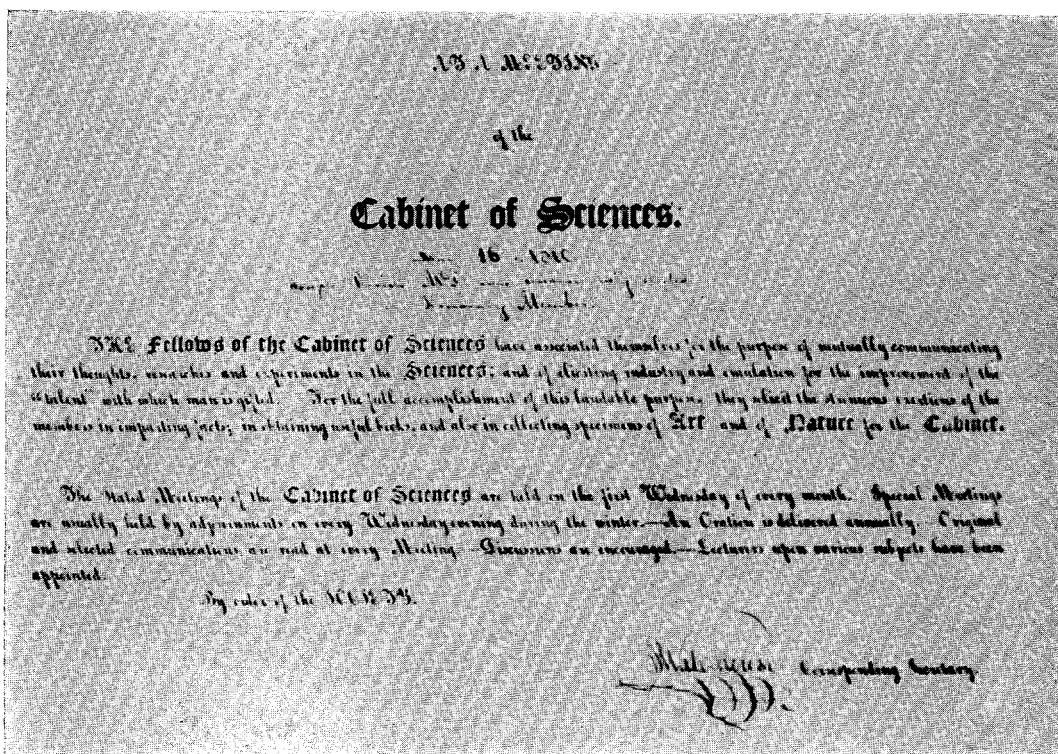 AT A MEETING
of the
Cabinet of Sciences.
16
Member
THE Fellows of the Cabinet of Sciences have associated themselves for the purpose of mutually communicating
their thoughts, researches and experiments in the Sciences; and of eliciting industry and emulation for the improvement of the
"talent" with which man is gifted. For the full accomplishment of this laudable purpose, they the exertions of the
members in imparting facts; in obtaining useful books, and also in collecting specimens of Art and of Nature for the Cabinet.
The Stated Meetings of the Cabinet of Sciences are held on the first Wednesday of every month. Special Meetings
are usually held by adjournments on every Wednesday evening during the winter.—An Oration is delivered annually. Original
and selected communications are read at every Meeting—Discussions are encouraged.—Lectures upon various subjects have been
appointed.
By order of the
Corresponding Secretary.